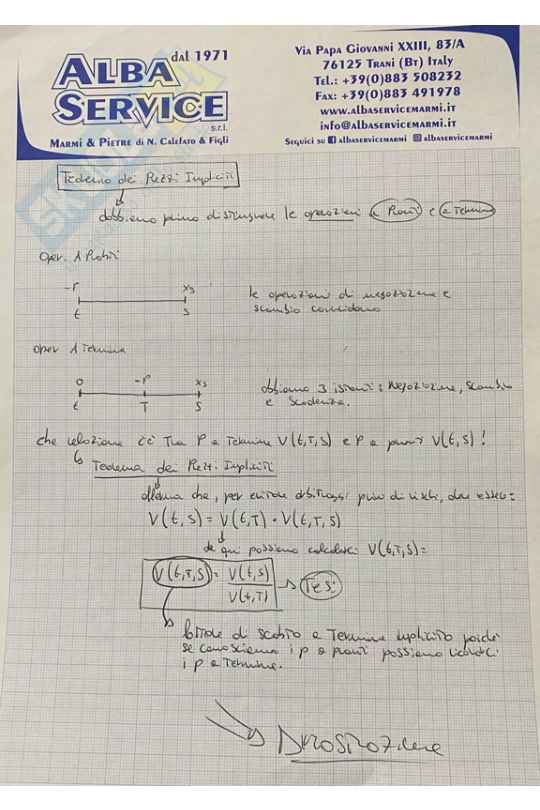 ALBA dal 1971
SERVICE
s.r.l.
MARMI & PIETRE di N. Calefato & Figli
VIA PAPA GIOVANNI XXIII, 83/A
76125 TRANI (BT) ITALY
TEL.: +39(0)883 508232
FAX: +39(0)883 491978
www.albaservicemarmi.it
info@albaservicemarmi.it
Seguici su albaservicemarmi albaservicemarmi
Teorema dei Prezzi Impliciti
dobbiamo prima distinguere le operazioni a Pronti e a Termine
Oper. A Pronti
-P xs
t s
le operazioni di negoziazione e
scambio coincidono
oper A Termine
0 -P xs
t T S
abbiamo 3 istanti: Negoziazione, Scambio
e Scadenza.
che relazione c'è Tra P a Termine V(t,T,S) e P a pronti V(t,S)!
Teorema dei Prezzi Impliciti
afferma che, per evitare arbitraggi privi di rischi, deve essere:
V(t,S) = V(t,T) • V(t,T,S)
da qui possiamo calcolarci V(t,T,S)=
V(t,T,S) = V(t,S) / V(t,T) → Tesi
fattore di sconto a Termine implicito poiché
se conosciamo i p a pronti possiamo ricavarci
i p a Termine.
Dimostrazione